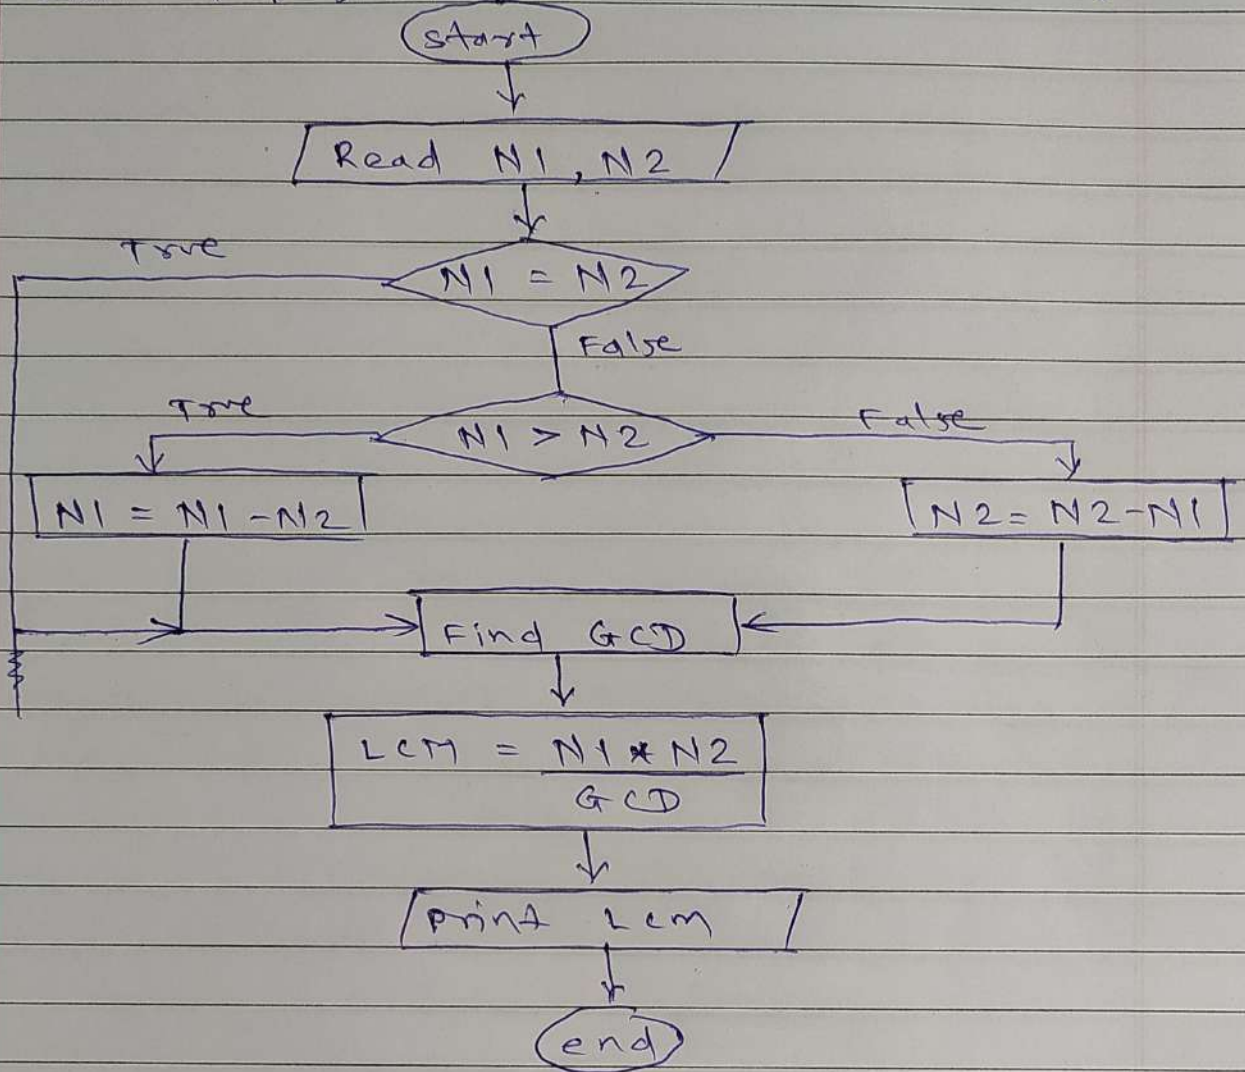 start
Read N1, N2
True
N1 = N2
False
True
N1 > N2
False
N1 = N1 - N2
N2 = N2 - N1
Find GCD
LCM = N1 * N2
GCD
print Lcm
end